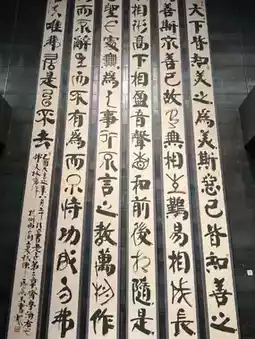 天下皆知美之為美斯惡已皆知善之
善斯不善已故有無相生難易相成長
相形高下相盈音聲相和前後相隨是
聖人處無為之事行不言之教萬物作
而不辭生而不有為而不恃功成而弗
夫唯弗居是以不去